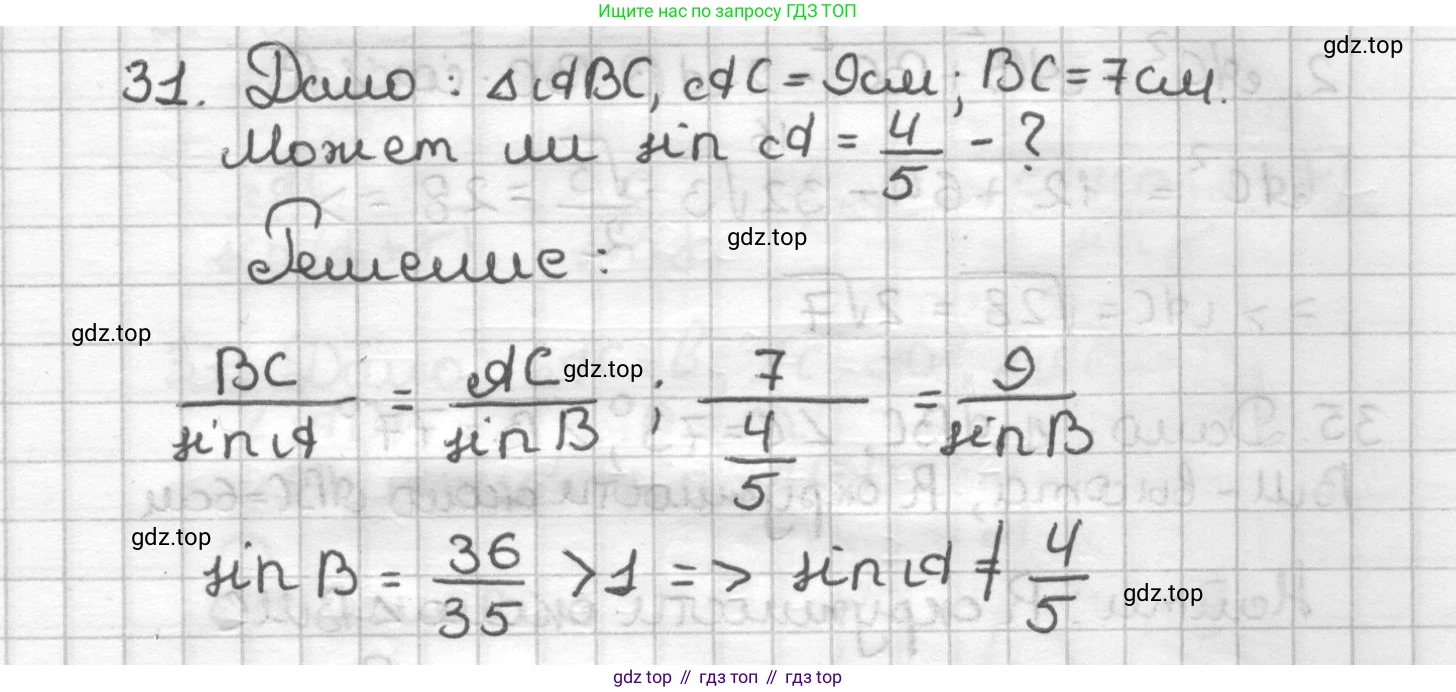 Ищите нас по запросу ГДЗ ТОП
gdz.top
31. Дано: ΔABC, AC = 9см; BC = 7см.
Может ли sin A = 4/5 - ?
gdz.top
Решение:
gdz.top
BC/sin A = AC/sin B; 7/(4/5) = 9/sin B
gdz.top
gdz.top
sin B = 36/35 > 1 => sin A ≠ 4/5
gdz.top
gdz top // гдз топ // gdz.top